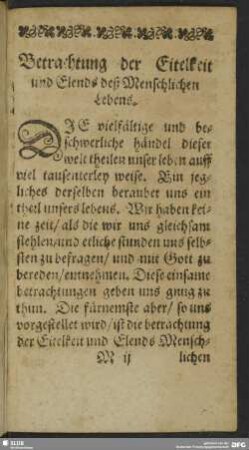 Betrachtung der Eitelkeit
und Elends deß Menschlichen
Lebens.
DIE vielfältige und be-
schwerliche händel dieser
welt theilen unser leben auff
viel tausenterley weise. Ein jeg-
liches derselben beraubet uns ein
theil unsers lebens. Wir haben kei-
ne zeit/ als die wir uns gleichsam
stehlen/ und etliche stunden uns selb-
sten zu befragen/ und mit Gott zu
bereden/ entnehmen. Diese einsame
betrachtungen geben uns gnug zu
thun. Die fürnemste aber/ so uns
vorgestellet wird/ ist die betrachtung
der Eitelkeit und Elends Mensch-
M ij lichen
SLUB